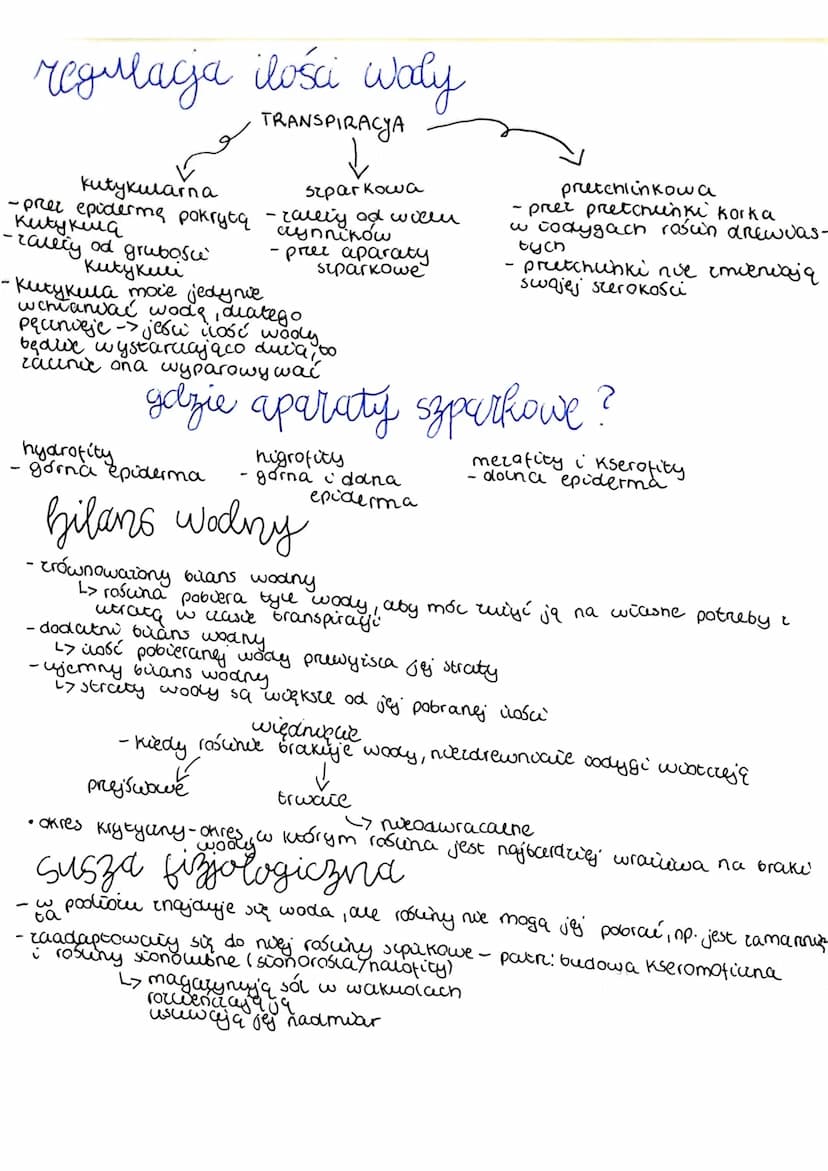 regulacja ilości wody
TRANSPIRACJA
kutykularna
- przez epidermę pokrytą
kutykulą
- zależy od grubości
kutykuli
- kutykula może jedynie
wchłaniać wodę, dlatego
pęcznieje -> jeśli ilość wody
będzie wystarczająco duża, to
zacznie ona wyparowywać
szparkowa
- zależy od wielu
czynników
- przez aparaty
szparkowe
przetchlinkowa
- przez przetchlinki korka
w łodygach roślin drzewias-
tych
- przetchlinki nie zmieniają
swojej szerokości
gdzie aparaty szparkowe?
hydrofity
- górna epiderma
higrofity
- górna i dolna
epiderma
mezofity i kserofity
- dolna epiderma
bilans wodny
- zrównoważony bilans wodny
↳ roślina pobiera tyle wody, aby móc zużyć ją na własne potrzeby z
utratą w czasie transpiracji
- dodatni bilans wodny
↳ ilość pobieranej wody przewyższa jej straty
- ujemny bilans wodny
↳ straty wody są większe od jej pobranej ilości
więdnięcie
- kiedy roślinie brakuje wody, niezdrewniałe łodygi wiotczeją
przejściowe
trwałe
↳ nieodwracalne
• okres krytyczny - okres, w którym roślina jest najbardziej wrażliwa na braki
wody
susza fizjologiczna
- w podłożu znajduje się woda, ale rośliny nie mogą jej pobrać, np. jest zamarznię-
ta
- zaadaptowały się do niej rośliny szpilkowe - patrz: budowa kseromoficzna
i rośliny słonolubne (słonorośla/halofity)
↳ magazynują sól w wakuolach
rozcieńczają ją
usuwają jej nadmiar